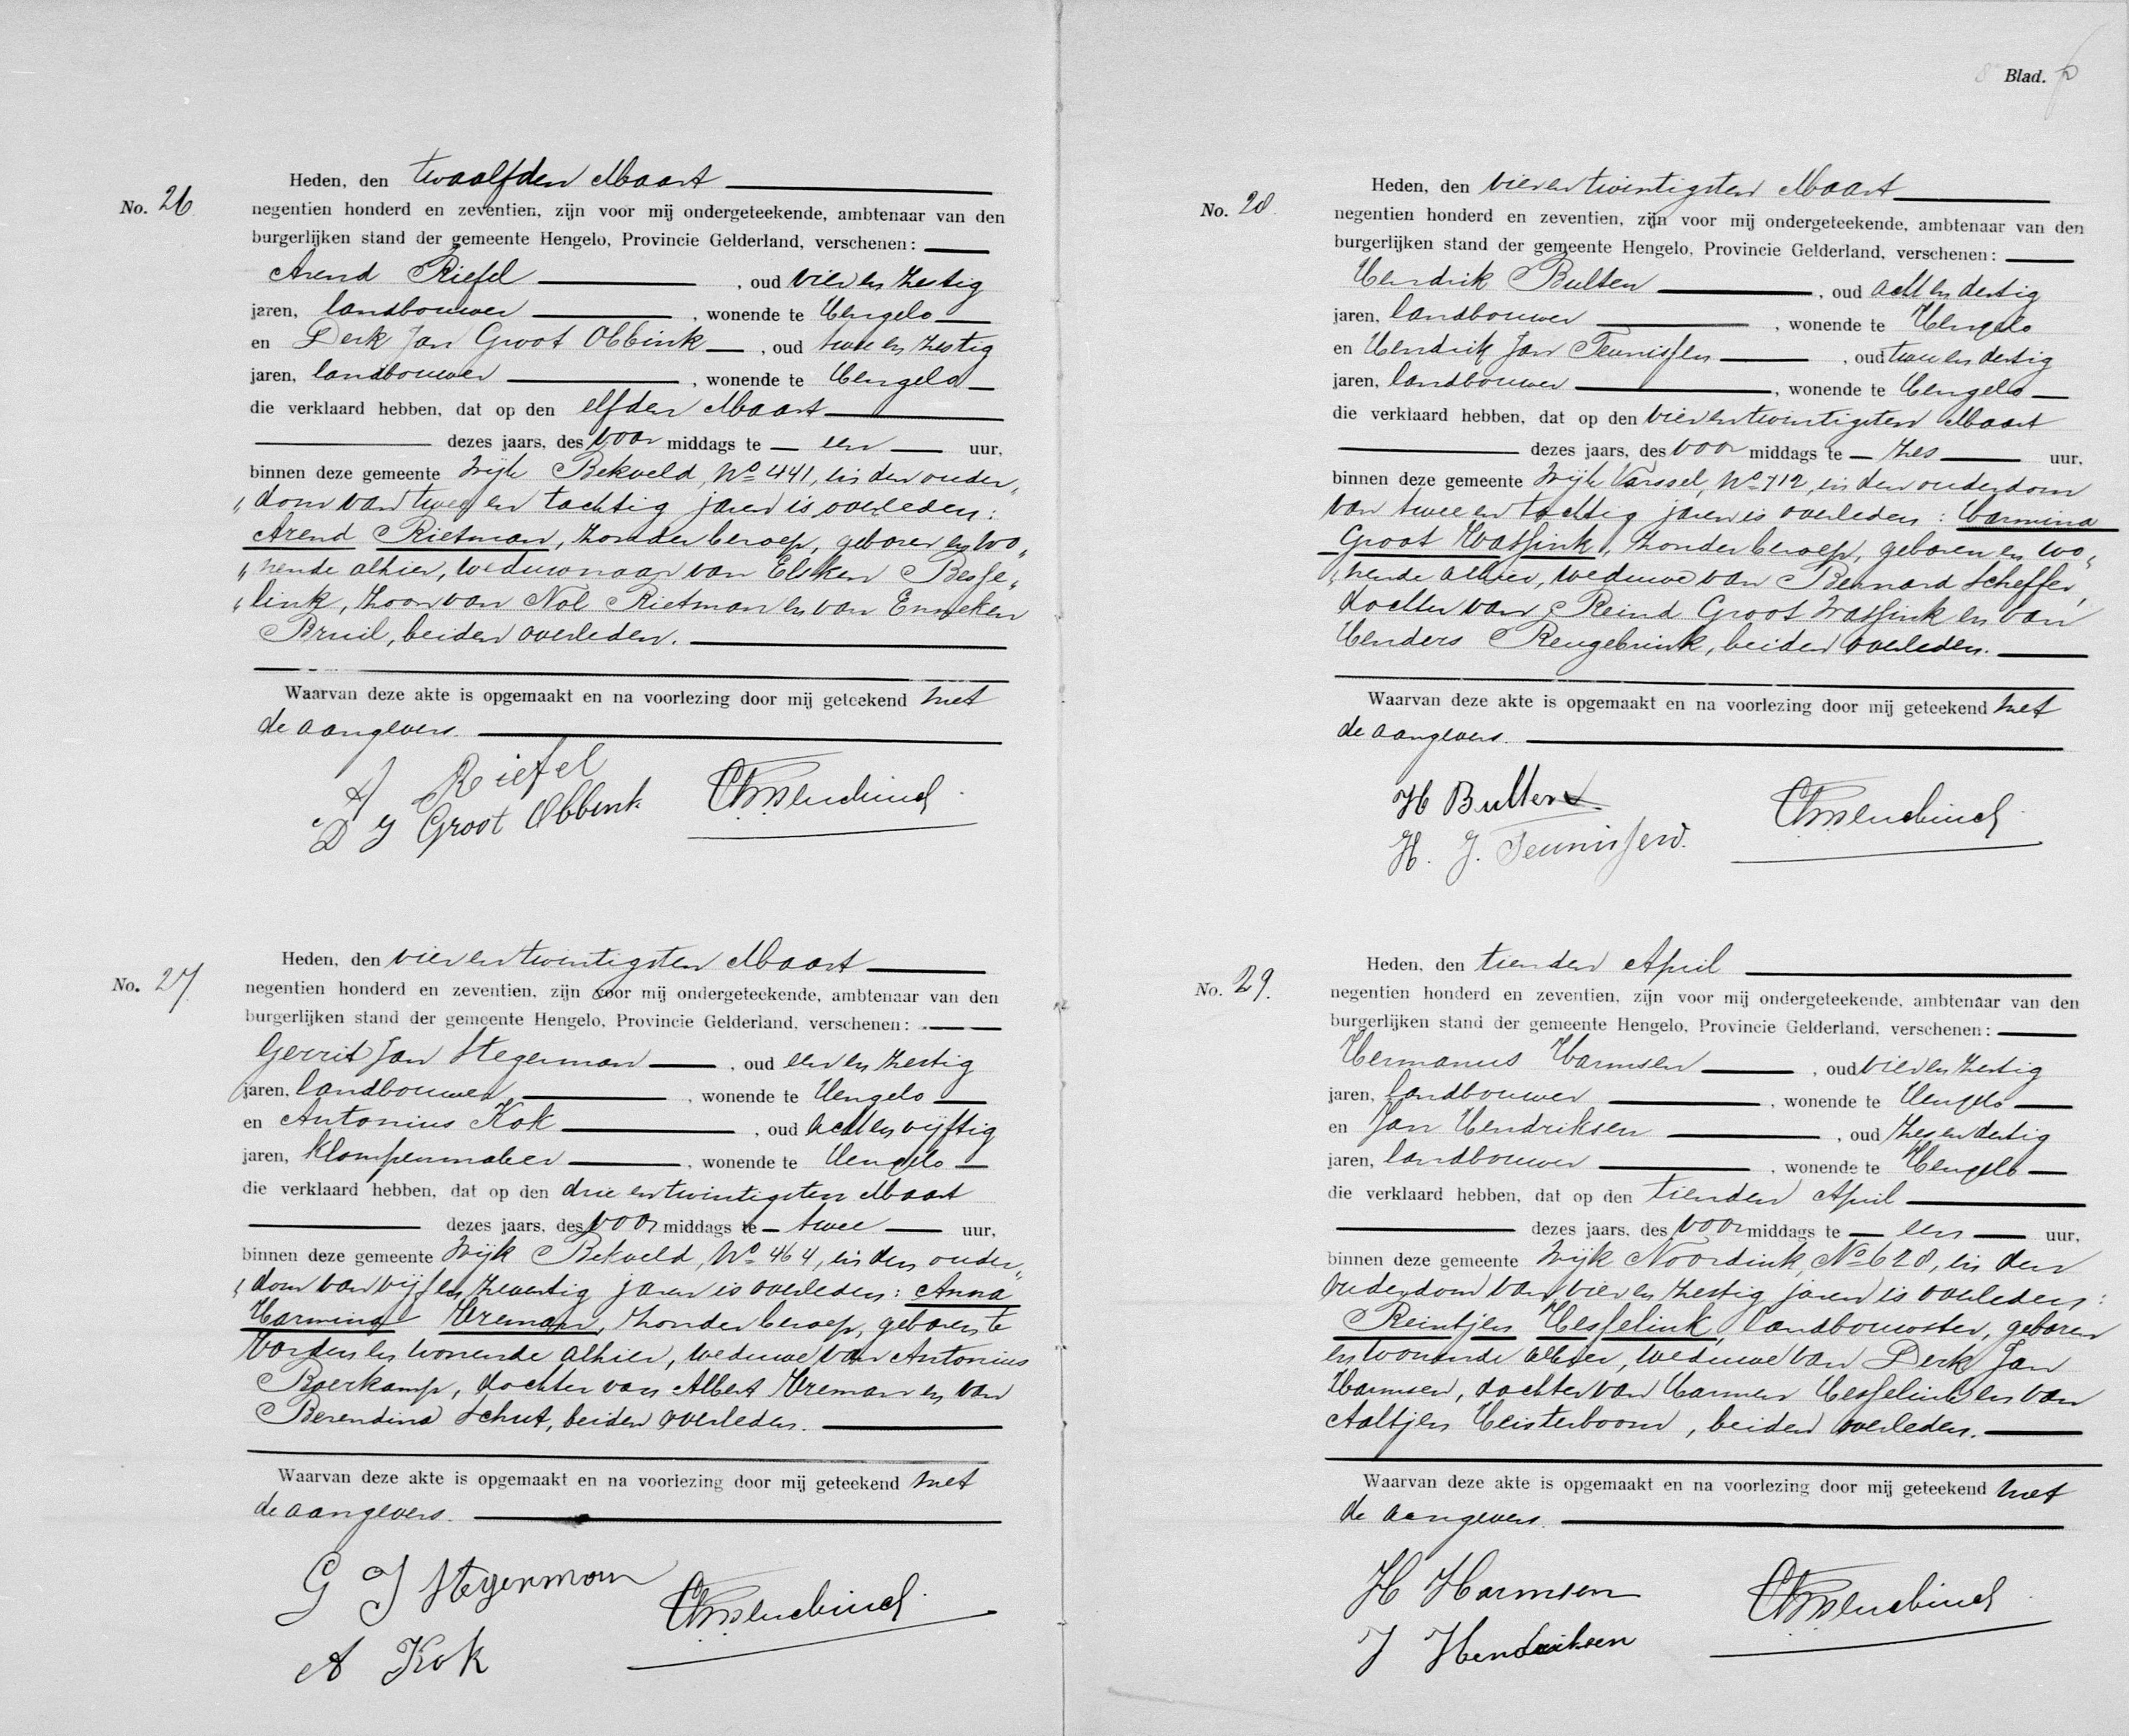 Heden, den twaalfden Maart
No. 26
negentien honderd en zeventien, zijn voor mij ondergeteekende, ambtenaar van den
burgerlijken stand der gemeente Hengelo, Provincie Gelderland, verschenen:
Arend Riefel, oud vier en zestig
jaren, landbouwer, wonende te Hengelo
en Derk Jan Groot Obbink, oud twee en zestig
jaren, landbouwer, wonende te Hengelo
die verklaard hebben, dat op den elfden Maart
dezes jaars, des voor middags te een uur,
binnen deze gemeente Wijk Bekveld, No 441, in den ouder„
„dom van twee en tachtig jaren is overleden:
Arend Rietman, zonder beroep, geboren en wo„
„nende alhier, weduwnaar van Elsken Besse„
„link, zoon van Nol Rietman en van Enneken
Bruil, beiden overleden.
Waarvan deze akte is opgemaakt en na voorlezing door mij geteekend met
de aangevers.
A Riefel
D J Groot Obbink
Heden, den vier en twintigsten Maart
No. 27
negentien honderd en zeventien, zijn voor mij ondergeteekende, ambtenaar van den
burgerlijken stand der gemeente Hengelo, Provincie Gelderland, verschenen:
Gerrit Jan Stegerman, oud een en zestig
jaren, landbouwer, wonende te Hengelo
en Antonius Kok, oud acht en vijftig
jaren, klompenmaker, wonende te Hengelo
die verklaard hebben, dat op den drie en twintigsten Maart
dezes jaars, des voor middags te twee uur,
binnen deze gemeente Wijk Bekveld, No 464, in den ouder„
„dom van vijf en zeventig jaren is overleden: Anna
Harmina Vreman, zonder beroep, geboren te
Vorden en wonende alhier, weduwe van Antonius
Roerkamp, dochter van Albert Vreman en van
Berendina Schut, beiden overleden.
Waarvan deze akte is opgemaakt en na voorlezing door mij geteekend met
de aangevers.
G J Stegerman
A Kok
Blad.
Heden, den vier en twintigsten Maart
No. 28.
negentien honderd en zeventien, zijn voor mij ondergeteekende, ambtenaar van den
burgerlijken stand der gemeente Hengelo, Provincie Gelderland, verschenen:
Hendrik Bulten, oud acht en dertig
jaren, landbouwer, wonende te Hengelo
en Hendrik Jan Teunissen, oud twee en dertig
jaren, landbouwer, wonende te Hengelo
die verklaard hebben, dat op den vier en twintigsten Maart
dezes jaars, des voor middags te zes uur,
binnen deze gemeente Wijk Varssel, No 712, in den ouderdom
van twee en tachtig jaren is overleden: Harmina
Groot Wassink, zonder beroep, geboren en wo„
„nende alhier, weduwe van Bernard Scheffer,
dochter van Reind Groot Wassink en van
Henders Rengebrink, beiden overleden.
Waarvan deze akte is opgemaakt en na voorlezing door mij geteekend met
de aangevers.
H Bulten
H. J. Teunissen.
Heden, den tienden April
No. 29.
negentien honderd en zeventien, zijn voor mij ondergeteekende, ambtenaar van den
burgerlijken stand der gemeente Hengelo, Provincie Gelderland, verschenen:
Hermanus Harmsen, oud vier en zestig
jaren, landbouwer, wonende te Hengelo
en Jan Hendriksen, oud zes en dertig
jaren, landbouwer, wonende te Hengelo
die verklaard hebben, dat op den tienden April
dezes jaars, des voor middags te een uur,
binnen deze gemeente Wijk Noordink, No 628, in den
ouderdom van vier en zestig jaren is overleden:
Reintjen Hesselink, landbouwster, geboren
en wonende alhier, weduwe van Derk Jan
Harmsen, dochter van Harmen Hesselink en van
Aaltjen Heisterboom, beiden overleden.
Waarvan deze akte is opgemaakt en na voorlezing door mij geteekend met
de aangevers.
H Harmsen
J Hendriksen